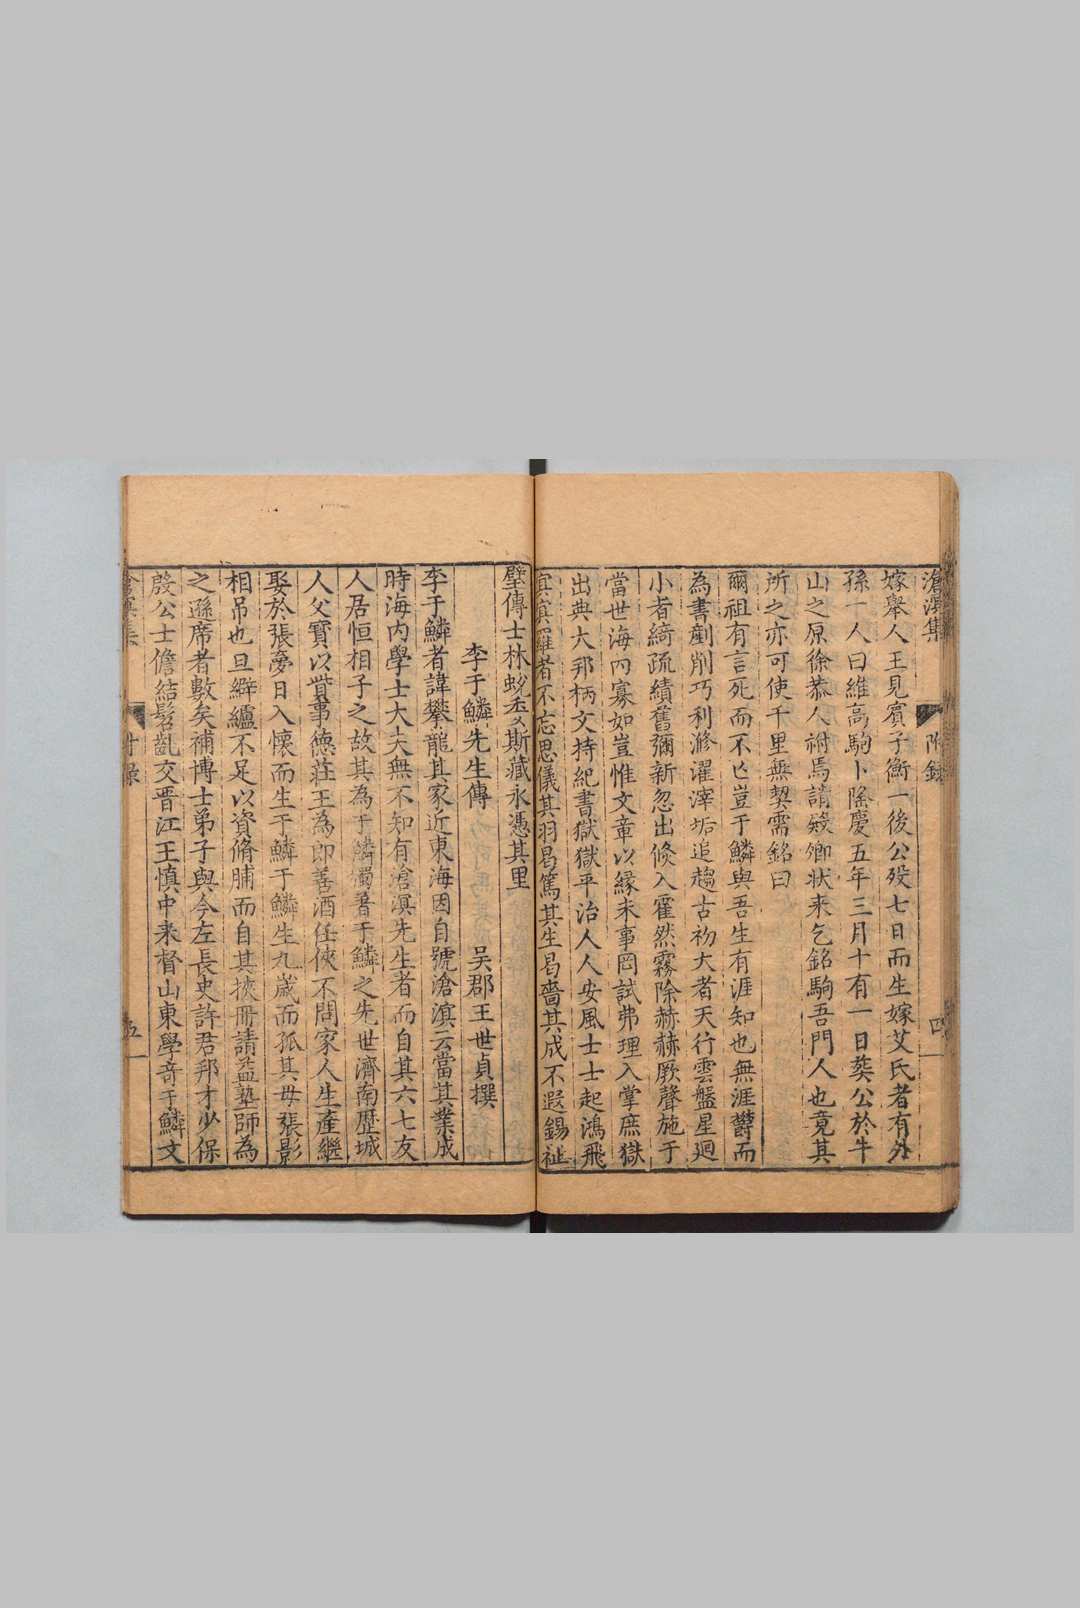 滄溟集
附錄
四
嫁舉人王見賓子衡一後公歿七日而生嫁艾氏者有外
孫一人曰維高駒卜隆慶五年三月十有一日葵公於牛
山之原徐恭人祔焉請殿卿狀来乞銘駒吾門人也竟其
所之亦可使千里無契需銘曰
爾祖有言死而不亡豈于鱗與吾生有涯知也無涯欝而
為書剷削巧利滲濯滓垢追趨古礿大者天行雲盤星廻
小者綺疏績舊彌新忽出倐入霍然霧除赫赫厥聲施于
當世海内寡如豈惟文章以緣未事罔試弗理入掌庶獄
出典大邦柄文持紀書獄獄平治人人安風士士起鴻飛
冥冥羅者不忘思儀其羽曷篤其生曷嗇其成不遐錫祉
壁傳士林蛻
斯藏永憑其里
李于鱗先生傳
吳郡王世貞撰
李于鱗者諱攀龍其家近東海因自號滄溟云當其業成
時海内學士大夫無不知有滄溟先生者而自其六七友
人居恒相子之故其為于鱗獨著于鱗之先世濟南歷城
人父寳以貲事德莊王為郎善酒任俠不問家人生產繼
娶於張夢日入懷而生于鱗于鱗生九歲而孤其母張影
相吊也旦纑不足以資脩脯而自其挾冊請益塾師為
之遜席者數矣補博士弟子與今左長史許君邦才少保
殷公士儋結髫齓交晋江王慎中来督山東學竒于鱗文
附錄
五